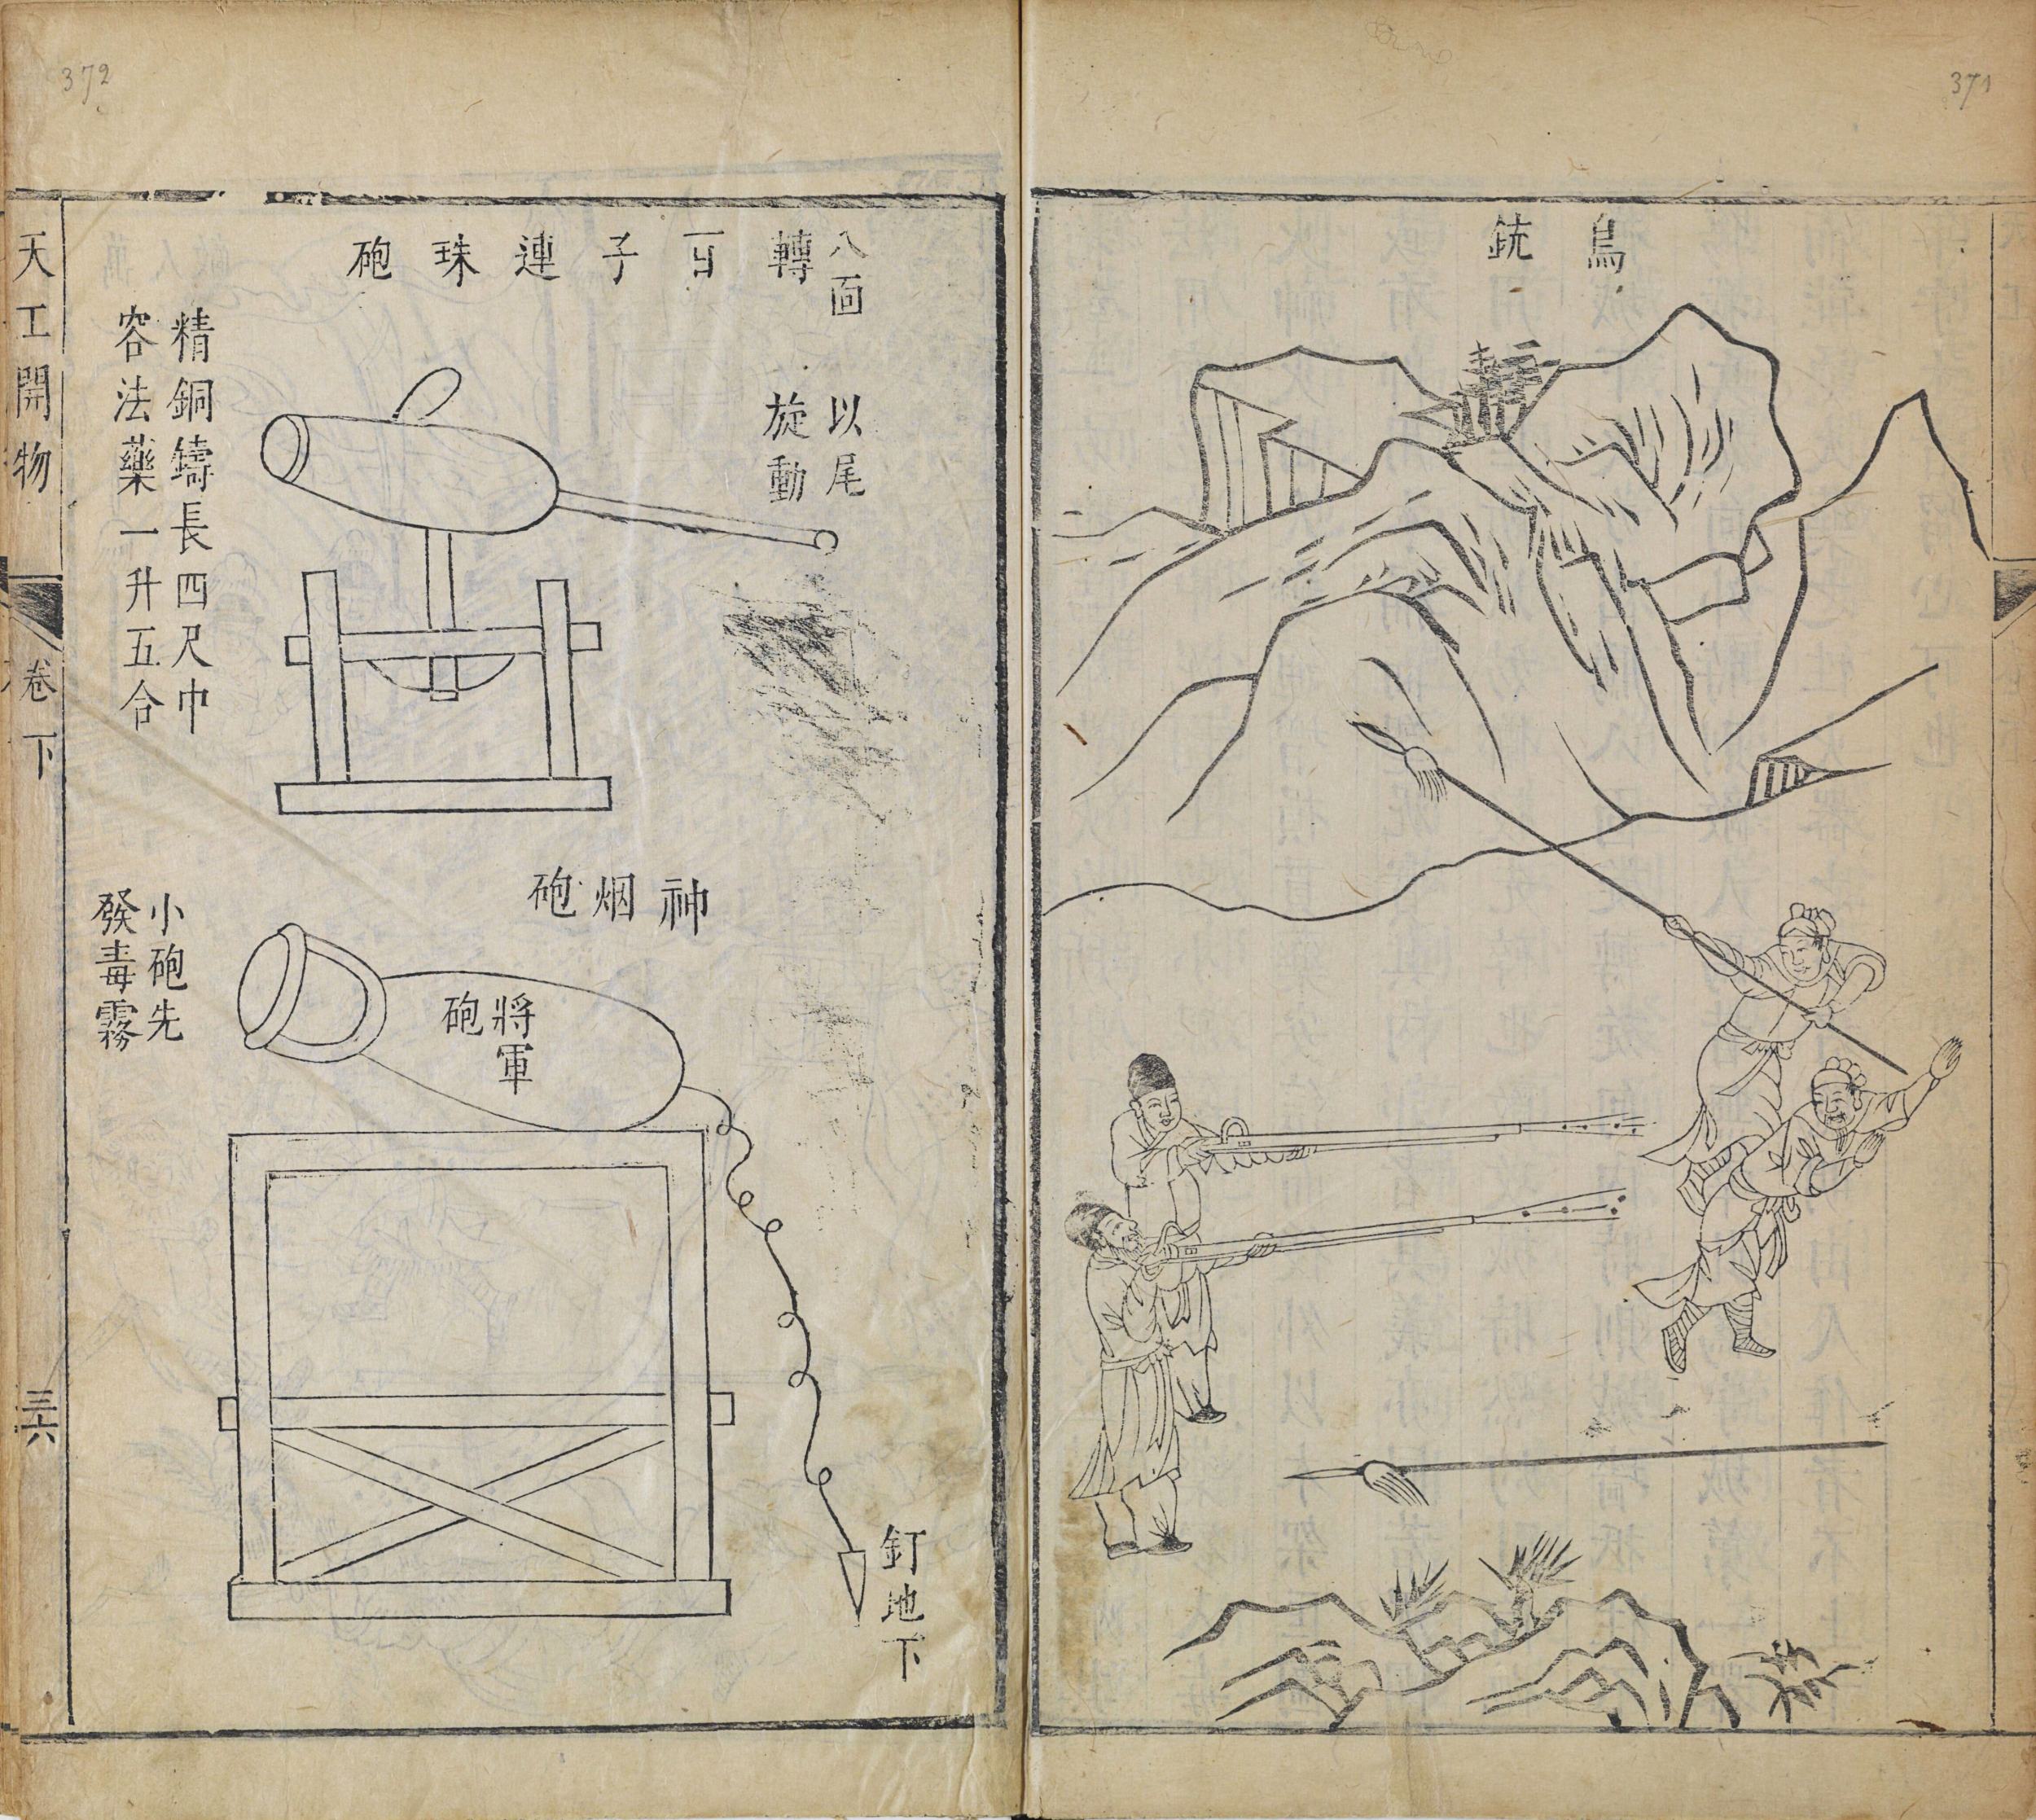 371
鳥銃
372
八面
轉百子連珠砲
以尾
旋動
精銅鑄長四尺巾
容法藥一升五合
神烟砲
將軍
砲
小砲先
發毒霧
釘地下
天工開物
卷下
三六